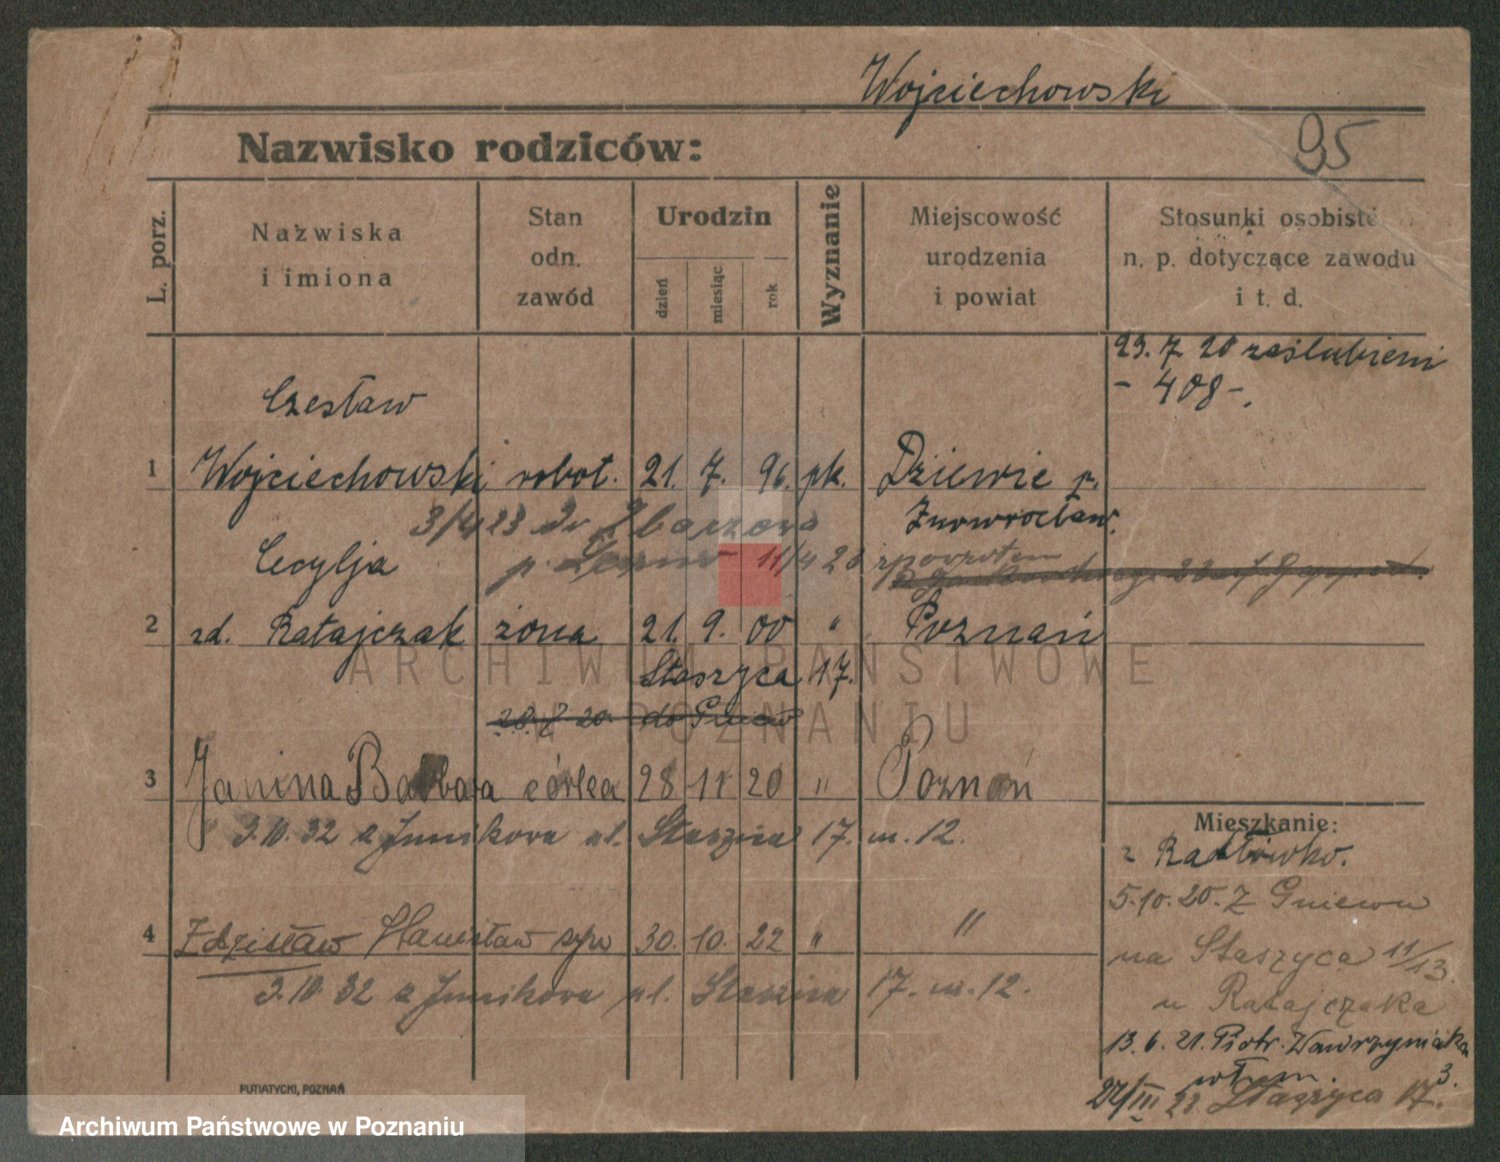 Wojciechowski
95
Nazwisko rodziców:
L. porz.
Nazwiska
i imiona
Stan
odn.
zawód
Urodzin
dzień
miesiąc
rok
Wyznanie
Miejscowość
urodzenia
i powiat
Stosunki osobiste
n. p. dotyczące zawodu
i t. d.
23. 7 20 zaślubieni
- 408 -.
Czesław
1 Wojciechowski robot. 21. 7. 96. rk. Dziewie p.
3/4 23 Inowrocław.
Cecylja
p. 11/4 23 z powrotem
2 zd. Ratajczak żona 21. 9. 00 " Poznań
Staszyca 17.
ARCHIWUM PAŃSTWOWE
20. 7 20. do
W POZNANIU
3 Janina Barbara córka 28 11 20 " Poznań
3.10.32 z Junikova ul. Staszica 17. m. 12.
Mieszkanie:
z Radłówko.
5.10.20. z Gniewu
4 Zdzisław Stanisław syn 30. 10. 22 " "
na Staszyca 11/13.
3.10 32 z Junikova ul. Staszica 17. m. 12.
u Ratajczaka
13. 6. 21. Piotr. Wawrzyniaka
3.
22/III 23 Staszyca 17.
PUTIATYCKI, POZNAŃ
Archiwum Państwowe w Poznaniu